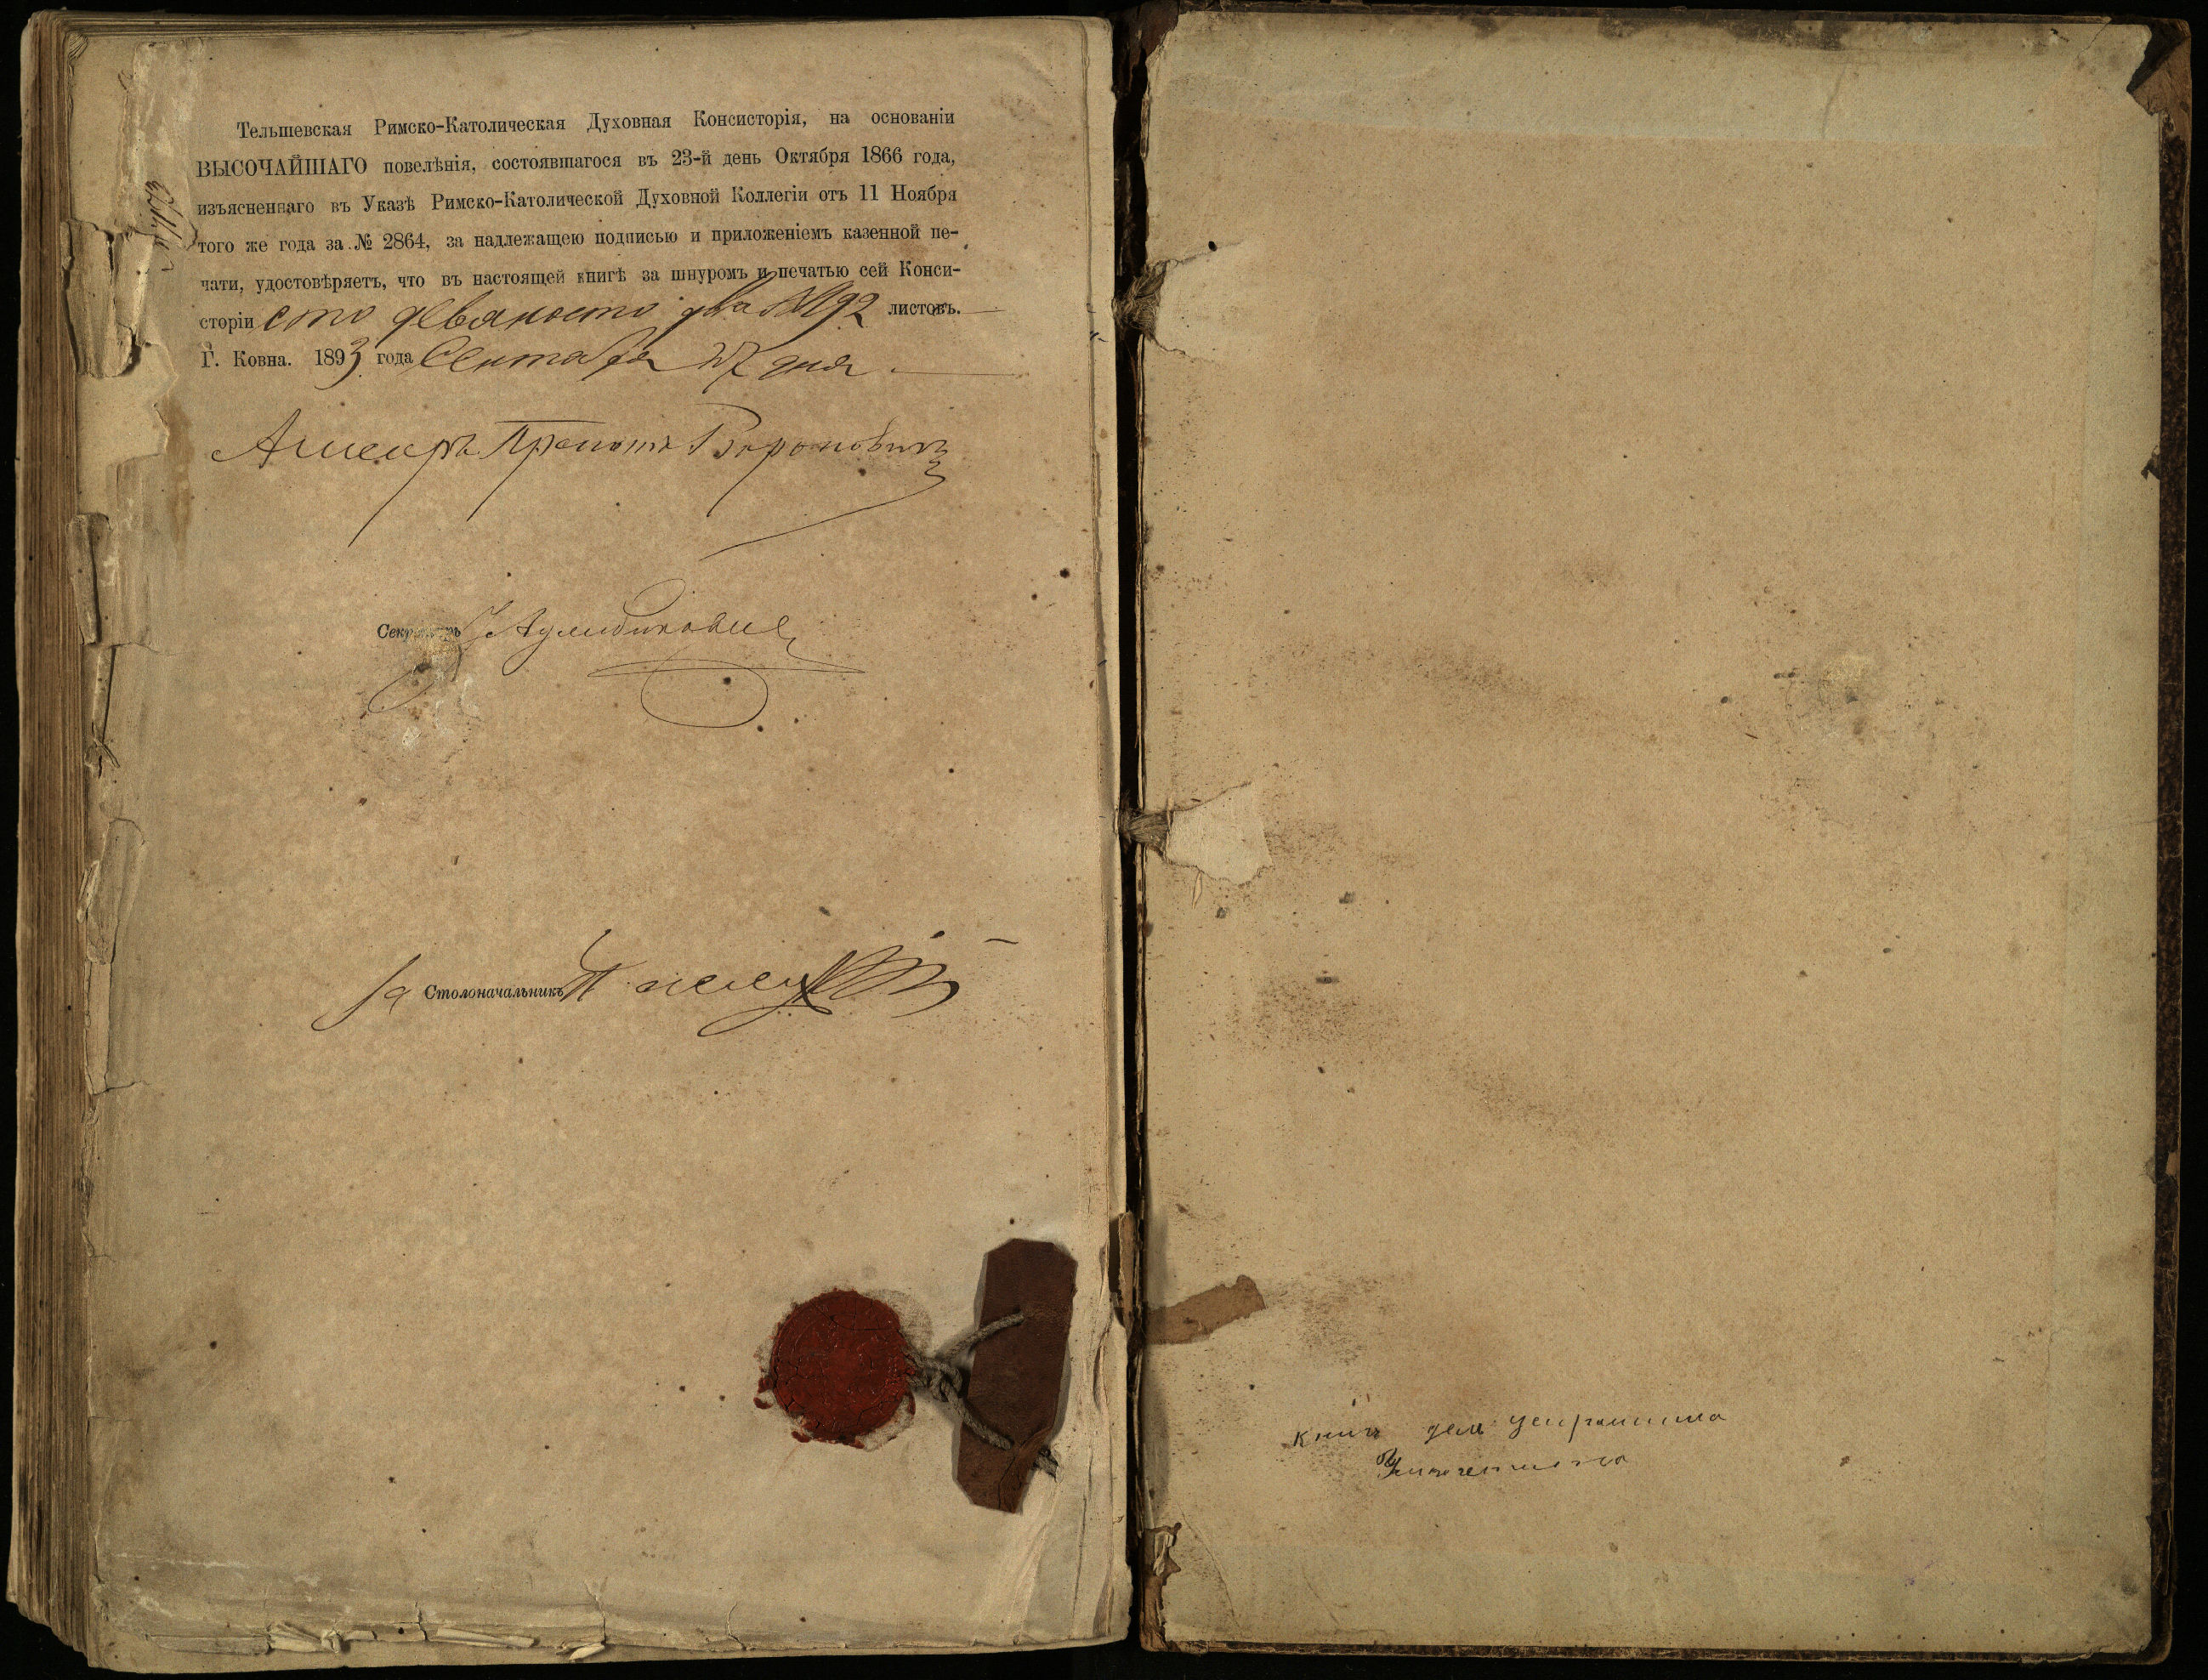 Тельшевская Римско-Католическая Духовная Консисторія, на основаніи
ВЫСОЧАЙШАГО повелѣнія, состоявшагося въ 23-й день Октября 1866 года,
изъясненнаго въ Указѣ Римско-Католической Духовной Коллегіи отъ 11 Ноября
того же года за № 2864, за надлежащею подписью и приложеніемъ казенной пе-
чати, удостовѣряетъ, что въ настоящей книгѣ за шнуромъ и печатью сей Конси-
сторіи сто девяносто два 192 листовъ.
Г. Ковна. 1893 года Сентября 27 дня
Ассесоръ Прелатъ
Секретарь
За Столоначальникъ